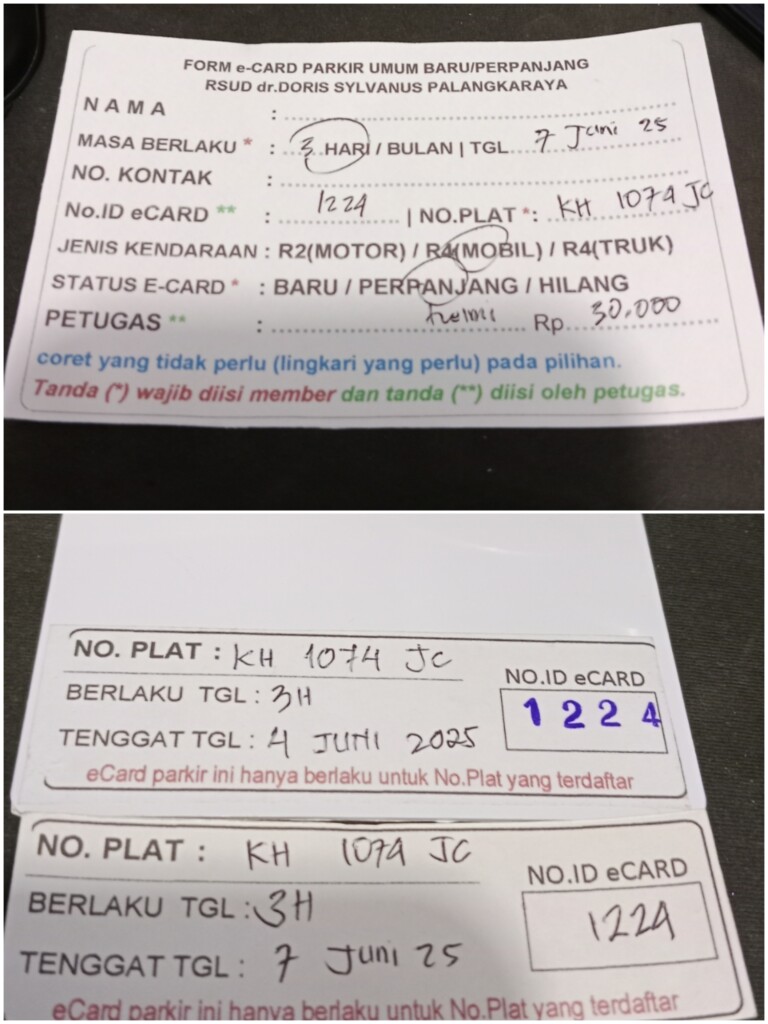 FORM e-CARD PARKIR UMUM BARU/PERPANJANG
RSUD dr.DORIS SYLVANUS PALANGKARAYA
NAMA :
MASA BERLAKU * : 3 HARI / BULAN | TGL 7 Juni 25
NO. KONTAK :
No.ID eCARD ** : 1224 | NO.PLAT *: KH 1074 JC
JENIS KENDARAAN : R2(MOTOR) / R4(MOBIL) / R4(TRUK)
STATUS E-CARD * : BARU / PERPANJANG / HILANG
PETUGAS ** : Helmi Rp. 30.000
coret yang tidak perlu (lingkari yang perlu) pada pilihan.
Tanda (*) wajib diisi member dan tanda (**) diisi oleh petugas.
NO. PLAT : KH 1074 JC
BERLAKU TGL : 3H
TENGGAT TGL : 4 JUNI 2025
NO.ID eCARD
1224
eCard parkir ini hanya berlaku untuk No.Plat yang terdaftar
NO. PLAT : KH 1074 JC
BERLAKU TGL : 3H
TENGGAT TGL : 7 Juni 25
NO.ID eCARD
1224
eCard parkir ini hanya berlaku untuk No.Plat yang terdaftar